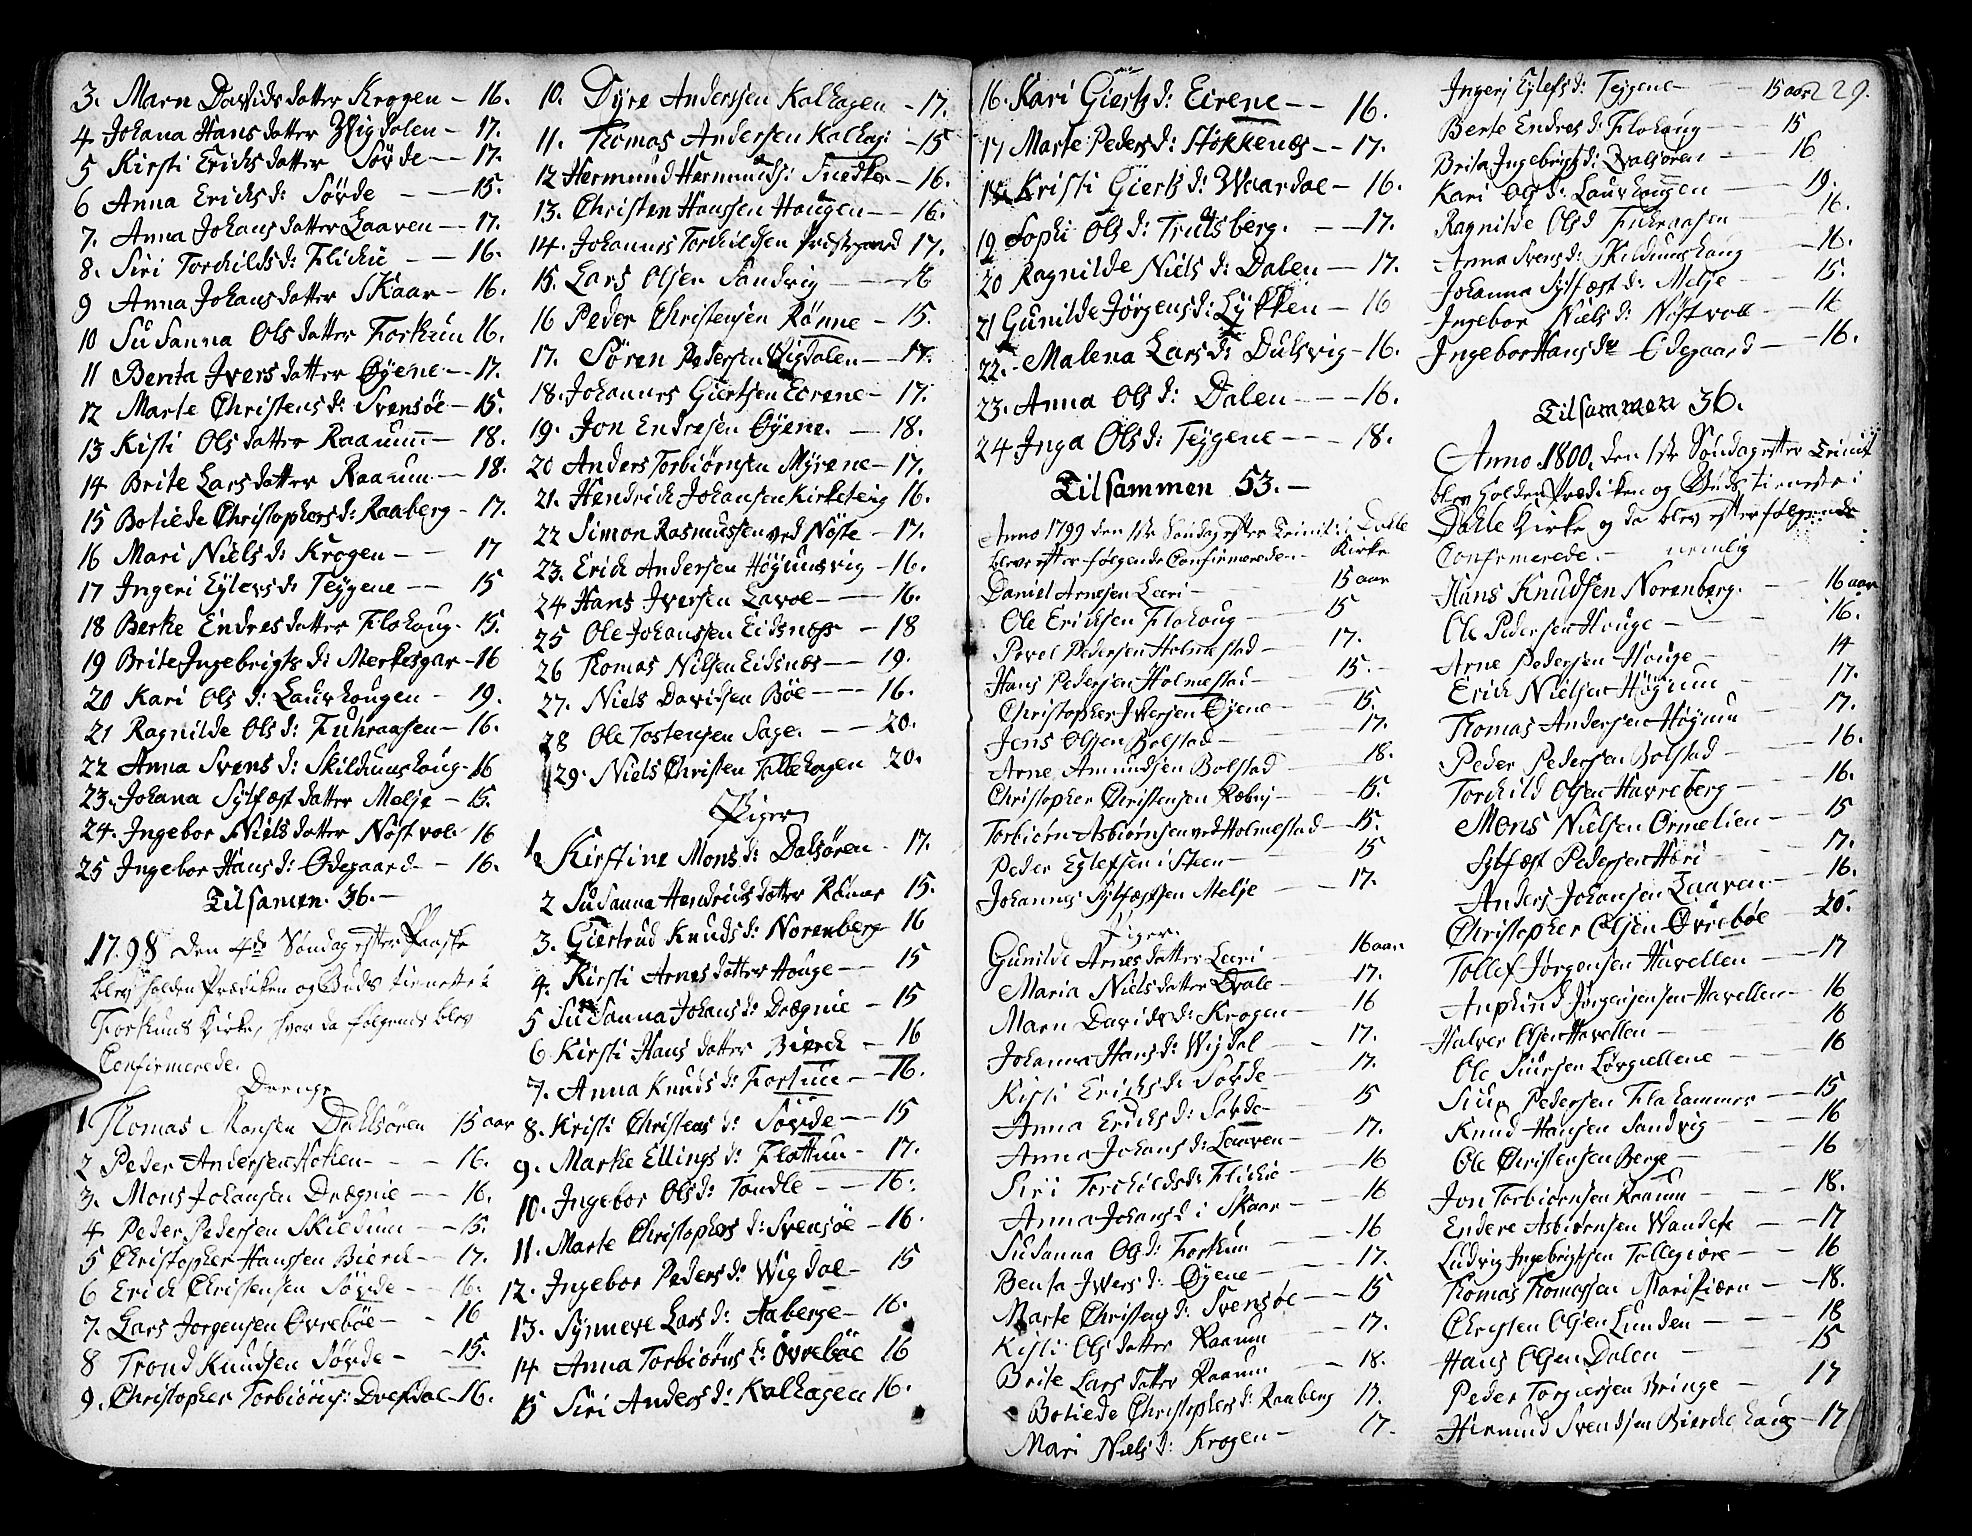 3. Marn Davidsdatter Krogen – 16.
4 Johana Hansdatter Wigdalen – 17.
5 Kirsti Erichsdatter Sövde – 17.
6 Anna Erichs d: Sövde – 15.
7. Anna Johansdatter Laaven – 17.
8. Siri Torchilds d: Flichie – 16.
9 Anna Johansdatter Skaar – 16.
10 Susanna Olsdatter Forthun 16.
11 Benta Iversdatter Øyene – 17.
12 Marte Christens d: Svensöe – 15.
13 Kisti Olsdatter Raaum – 18.
14 Brite Larsdatter Raaum – 18.
15 Botilde Christophers d: Raaberg – 17.
16 Mari Niels d: Krogen – 17
17 Ingeri Eylevs d: Teÿgene – 15
18 Berthe Endresdatter Flohoug – 15.
19 Brite Ingebrigts d: Merkesgar – 16
20 Kari Ols d: Laurhougen – 19.
21 Ragnilde Ols d: Fuhraasen – 16.
22 Anna Svens d: Skildumshoug – 16
23. Johana Sylfæstdatter Melje – 15.
24. Ingebor Nielsdatter Nöstvol 16
25 Ingebor Hans d: Ødegaard – 16.
Tilsamen. 36. –
1798 den 4de Søndag efter Paaske
blev holden Prædiken og Guds tieneste i
Forthuns Kirke, hvor da følgende blev
Confirmerede.
Drenge
1 Thomas Monsen Dahlsören 15 aar
2 Peder Andersen – 16.
3. Mons Johansen Drægnie – 16.
4 Peder Pedersen Skieldum – 15.
5 Christopher Hanssen Bierch – 17.
6 Erich Christensen Sövde – 16.
7. Lars Jorgensen Øvrebøe – 16
8 Trond Knudsen Sövde – 15.
9. Christopher Torbiörns: Drefdal – 16.
10. Dyre Anderssen Kalhagen – 17.
11. Thomas Andersen Kalhag: – 15
12 Hermund Hermunds: Snedker – 16.
13. Christen Hanssen Haugen – 16.
14. Johannes Torchildsen Prestegaard 17.
15. Lars Olsen Sandvig – 16
16 Peder Christensen Rønne – 15.
17. Søren Pedersen Vigdalen – 17.
18. Johannes Giertsen Eirene – 17.
19. Jon Endresen Øyene. – 18.
20 Anders Torbiørnsen Myrene – 17.
21. Hendrich Johansen Kirketeig 16.
22 Simon Rasmussen ved Nöste – 17.
23. Erich Andersen Högumsvig – 16.
24 Hans Iversen Lavoe – 16.
25 Ole Johanssen Eidsnæss – 18
26 Thomas Nilsen Eidsnæs – 19.
27. Niels Davidsen Böe – 16.
28 Ole Tostensen Sage. – 20.
29. Niels Christen Tollehagen 20.
Piger
1 Kirstine Mons d: Dalsören – 17.
2 Susanna Hendrichsdatter 15.
3. Giertrud Knuds d: Norenberg 16
4. Kirsti Arnesdatter Houge – 15
5 Susanna Johans d: Drægnie – 15
6 Kirsti Hansdatter Bierch – 16
7. Anna Knuds d: Fortuen – 16.
8. Kristi Christens d: Sövde – 15
9. Marthe Ellings d: Flattun – 17.
10. Ingebor Ols d: Tandle – 16.
11. Marte Christophers d: Svensöe – 16.
12. Ingebor Peders d: Wigdal – 15
13. Synneve Lars d: Aaberge – 16.
14 Anna Torbiörns d: Øvrebøe 16
15 Siri Anders d: Kalhagen 16.
16. Kari Gierts d: Eirene – 16.
17 Marte Peders d: Støkkenæs – 17.
18. Kristi Gierts d: Waardal – 16.
19 Sophi Ols d: Trulsberg. – 17.
20 Ragnilde Niels d: Dalen – 17.
21 Gunilde Jörgens d: Lykken – 16
22. Malena Lars d: Dulsvig – 16.
23. Anna Ols d: Dalen – 16.
24 Inga Ols d: Teÿgene – 18.
Tilsammen 53. –
Anno 1799 den 1ste Søndag efter Trinit: i Dahle
blev efter følgende Confirmerede – Kirke
Daniel Arnesen Leeri – 15 aar
Ole Erichsen Flohoug – 15
Povel Pedersen Holmestad – 17.
Hans Pedersen Holmestad – 15.
Christopher Iversen Øyene – 15.
Jens Olssen Bolstad – 17.
Arne Amundsen Bolstad – 18.
Christopher Christensen Ræbnj – 15.
Torbiørn Asbiørnsen ved Holmestad – 15.
Peder Eylefsen i Steen – 15
Johannes Sylfæstsen Melje – 17.
Piger.
Gunilde Arnesdatter Leeri – 16 aar
Maria Nielsdatter Dvale – 17.
Marn Davids d: Krogen – 16
Johanna Hans d: Wigdal – 17.
Kisti Erichs d: Sövde – 17.
Anna Erichs d: Sövde – 15
Anna Johans d: Laaven – 17.
Siri Torchilds d: Flichie – 16
Anna Johans d: Skaar – 16
Susanna Ols d: Forthun – 16
Benta Ivers d: Øyene – 17.
Marte Christens d: Svensöe – 15
Kisti Olsdatter Raaum – 17.
Brite Larsdatter Raaum – 18.
Botilde Christophers d: Raaberg 17.
Mari Niels d: Krogen – 17.
Ingeri Eylefs d: Teygene – 15 aar 229.
Berte Endres d: Flohoug – 15
Brita Ingebrigts d: Dalsören – 16
Kari Ols d: Laurhougen – 19.
Ragnilde Ols d Fuhraasen – 16.
Anna Svens d: Skildumshoug – 16.
Johanna Sylfæst d: Melje – 15.
Ingebor Niels d: Nöstvoll – 16
Ingebor Hans dr Ødegaard – 16.
Tilsammen 36.
Anno 1800, den 1ste Søndag efter Trinit
blev holden Prædiken og Guds tieneste i
Dahle Kirke og da blev efterfølgende
Confirmerede. – nemlig
Hans Knudsen Norenberg. – 16 aar
Ole Pedersen Houge – 16.
Arne Pedersen Houge – 14
Erich Nielsen Högum – 17.
Thomas Andersen Högum – 17.
Peder Pedersen Bolstad – 16.
Torchild Olsen Havreberg – 16.
Mons Nielsen Ormelien – 15
Sylfæst Pedersen Høri – 17.
Anders Johansen Laaven – 16.
Christopher Olsen Øvrebøe – 20.
Tollef Jørgensen Havellen – 17
Asplund Jørgensen Havellen – 16
Halver Olsen Havellen – 16
Ole Siursen Lörgiellene – 16
Siur Pedersen Flahammer – 15
Knud Hansen Sandvig – 16
Ole Christensen Berge – 16
Jon Torbiornsen Raaum – 18.
Endere Asbiørnsen Wandest – 17
Ludvig Ingebrigtsen Tollegiöre – 16
Thomas Thomassen Marifiæren – 18.
Christen Olsen Lunden – 18
Hans Olsen Dalen – 15
Peder Torgiersen Bringe – 17
Hermund Svendsen Bierchehaug – 17